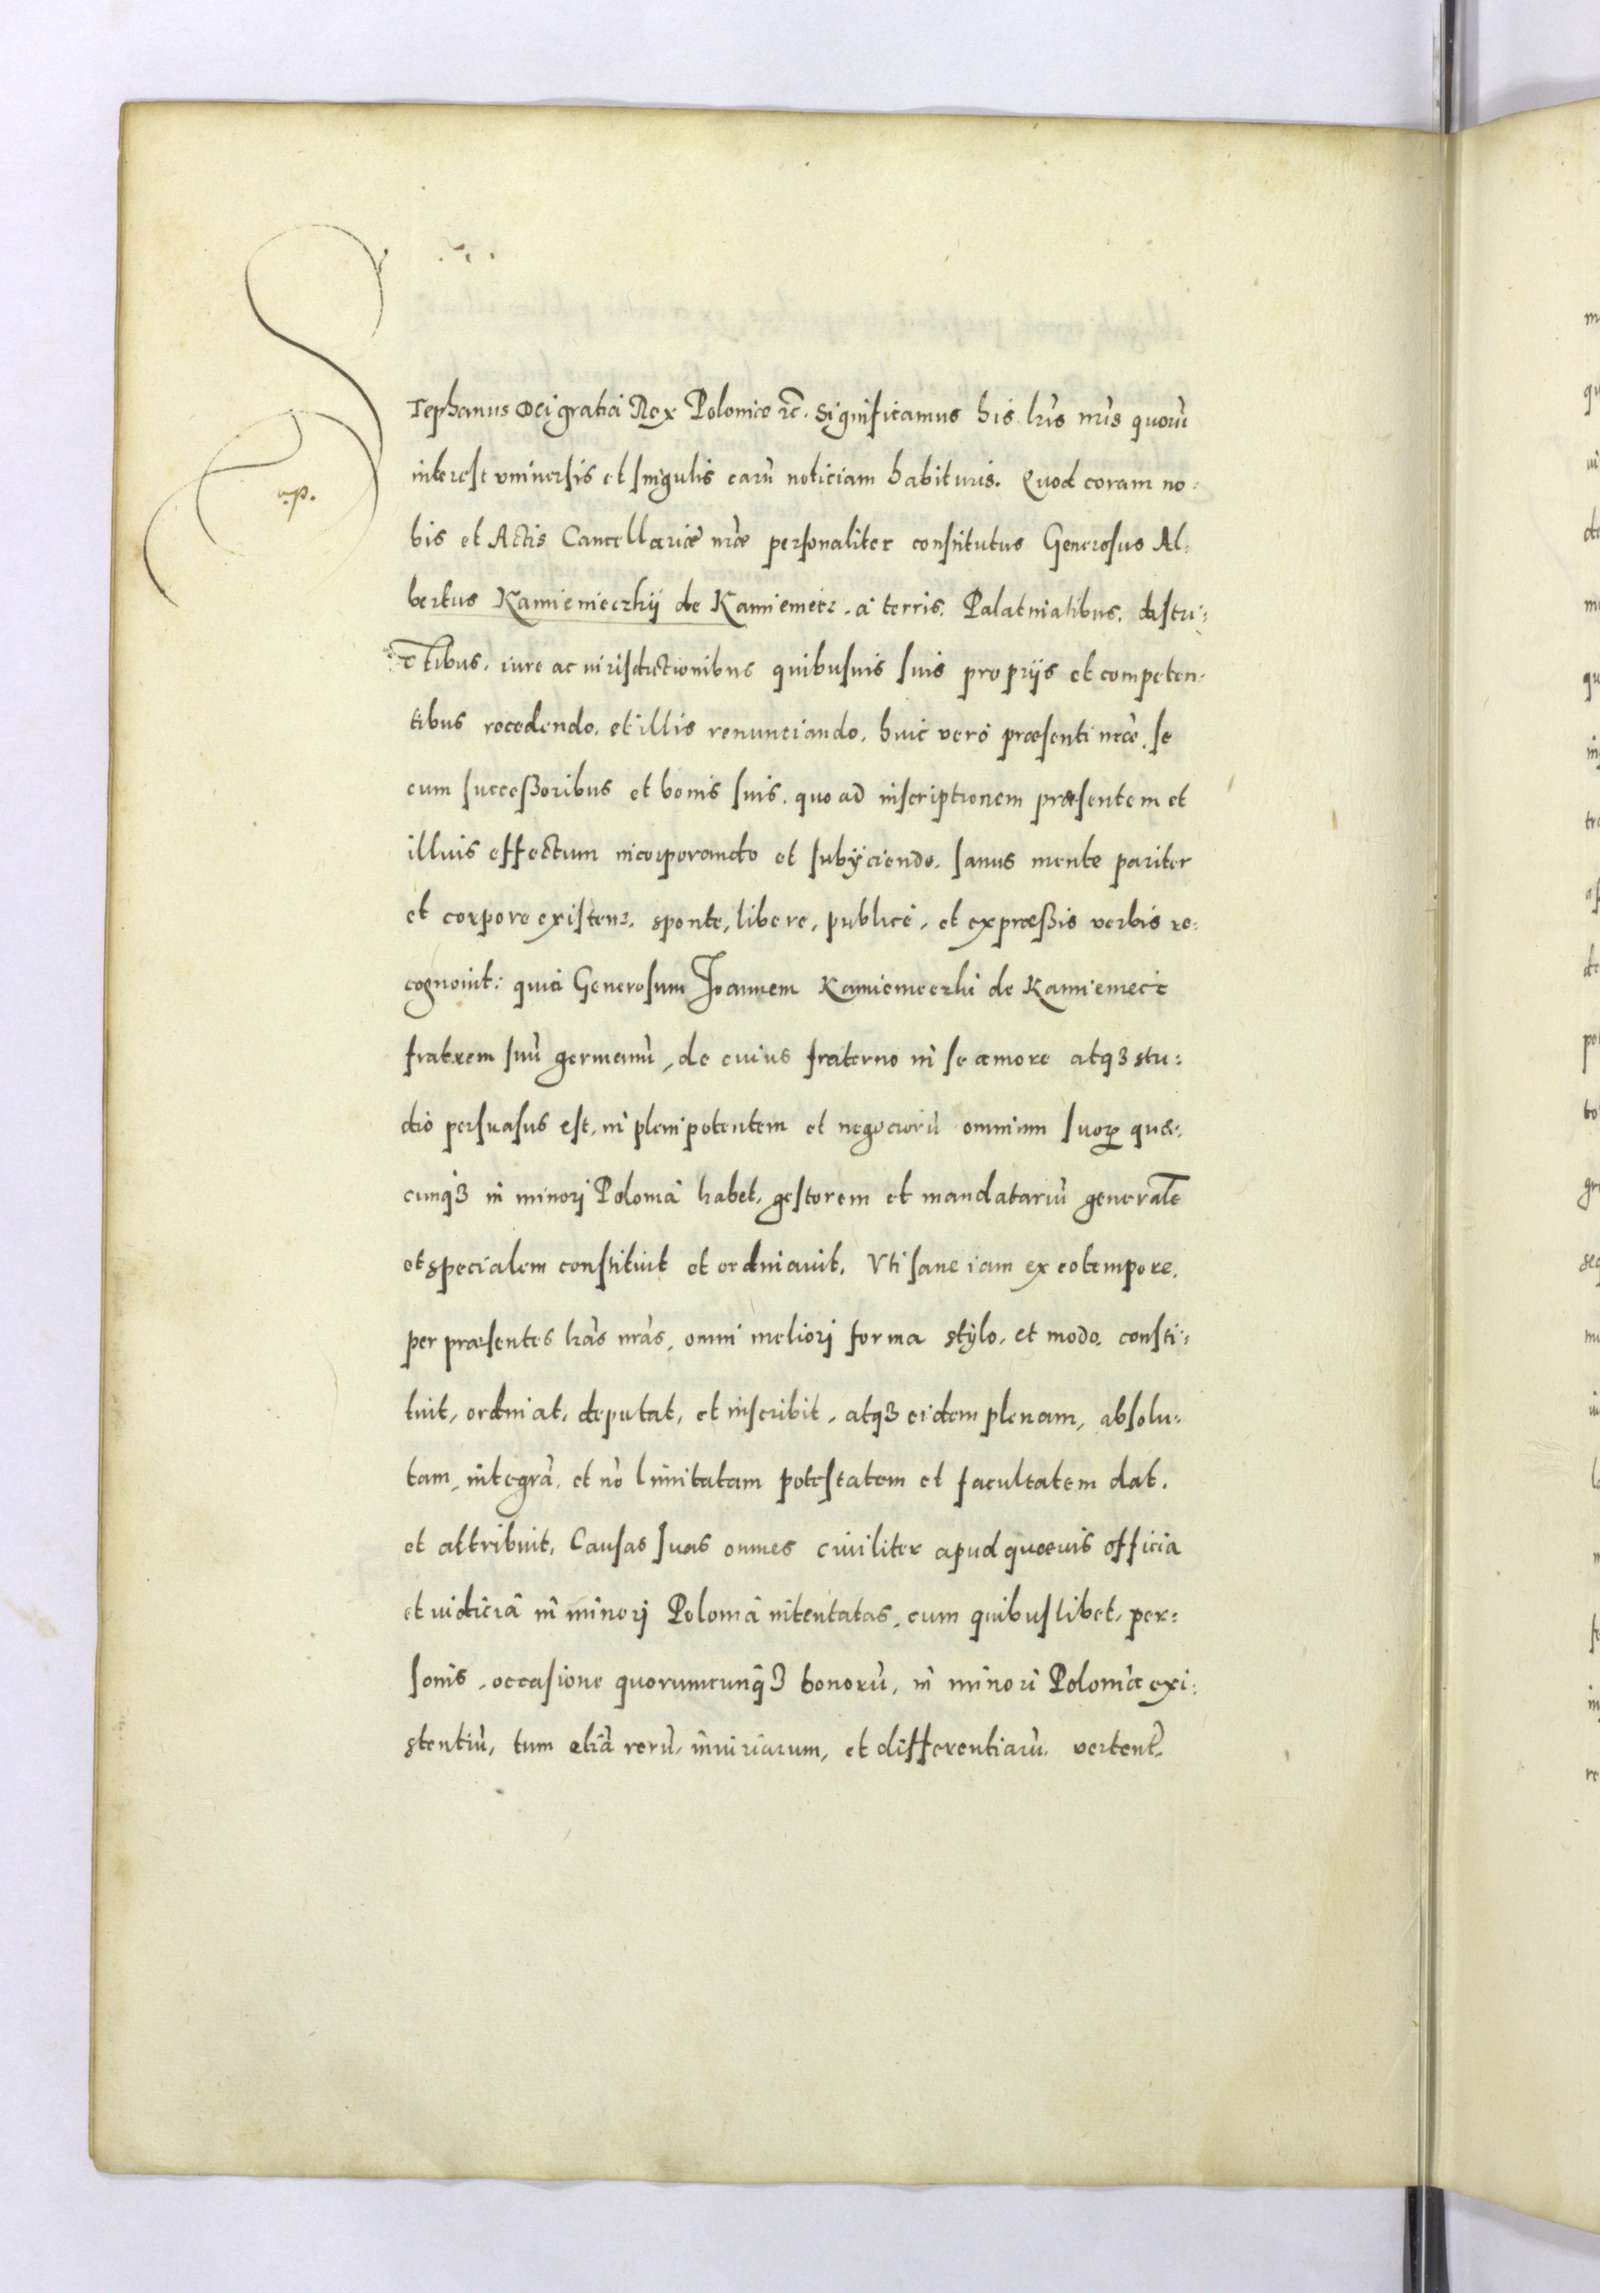 Stephanus Dei gratia Rex Poloniæ etc. Significamus his lris nris quorũ
interest vniuersis et singulis earũ noticiam habituris. Quod coram no=
n.p.
bis et Actis Cancellariæ nræ personaliter constitutus Generosus Al=
bertus Kamienieczkij de Kamieniecz. á terris, Palatinatibus, distri=
ctibus, iure ac iurisdictionibus quibusuis suis proprijs et competen=
tibus recedendo, et illis renunciando, huic veró præsenti nræ, se
cum successoribus et bonis suis, quo ad inscriptionem præsentem et
illius effectum incorporando et subijciendo, sanus mente pariter
et corpore existens, sponte, libere, publicè, et expræssis verbis re=
cognouit: quia Generosum Joannem Kamienieczki de Kamieniecz
fratrem suũ germanũ, de cuius fraterno in se amore atq3 stu=
dio persuasus est, in plenipotentem et negociorũ omnium suorꝝ quæ=
cunq3 in minori Poloniâ habet, gestorem et mandatariũ generalẽ
et specialem constituit et ordinauit, Vti sane iam ex eo tempore,
per præsentes lras nras, omni meliori forma stylo, et modo, consti=
tuit, ordinat, deputat, et inscribit, atq3 eidem plenam, absolu=
tam, integrã, et nõ limitatam potestatem et facultatem dat,
et attribuit, Causas suas omnes ciuiliter apud quæuis officia
et iudicia in minori Poloniâ intentatas, cum quibuslibet, per=
sonis, occasione quorumcunq3 bonorũ, in minori Polonia exi=
stentiũ, tum etiã rerũ, iniuriarum, et differentiarũ, vertent.